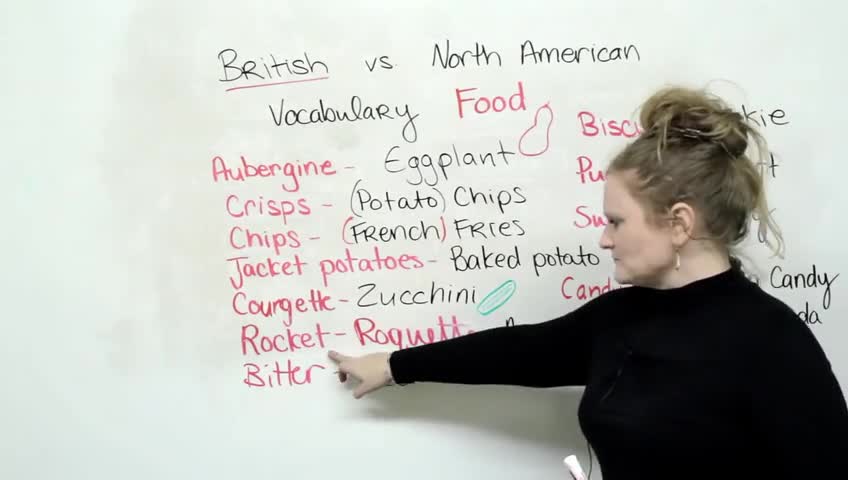 British vs. North American
Vocabulary Food
Aubergine - Eggplant
Crisps - (Potato) Chips
Chips - (French) Fries
Jacket potatoes - Baked potato
Courgette - Zucchini
Rocket - Roquette
Bitter
Candy